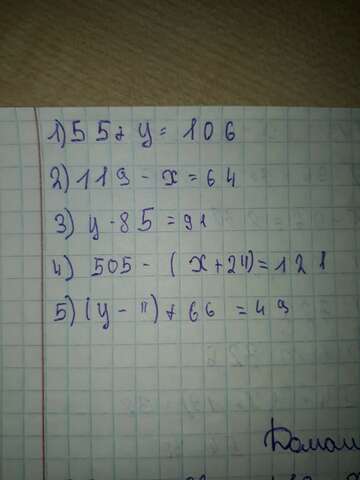 1) 55 + y = 106
2) 119 - x = 64
3) y - 85 = 91
4) 505 - (x + 24) = 121
5) (y - 11) + 66 = 49
Домаш